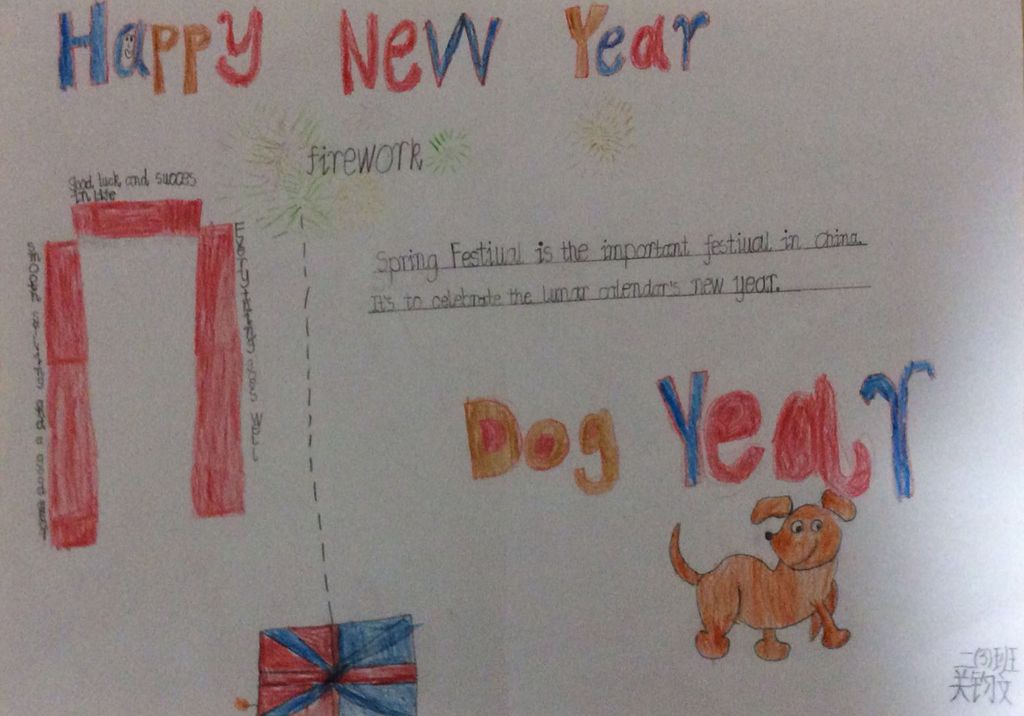 Happy New Year
firework
Good luck and success
in life
Everything goes well
Spring Festival is the important festival in china.
It's to celebrate the lunar calendar's new year.
Dog Year
二(3)班
关钧文